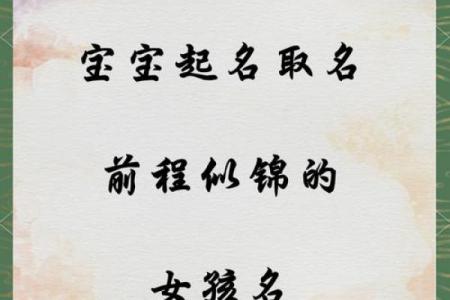 宝宝起名取名
前程似锦的
女孩名